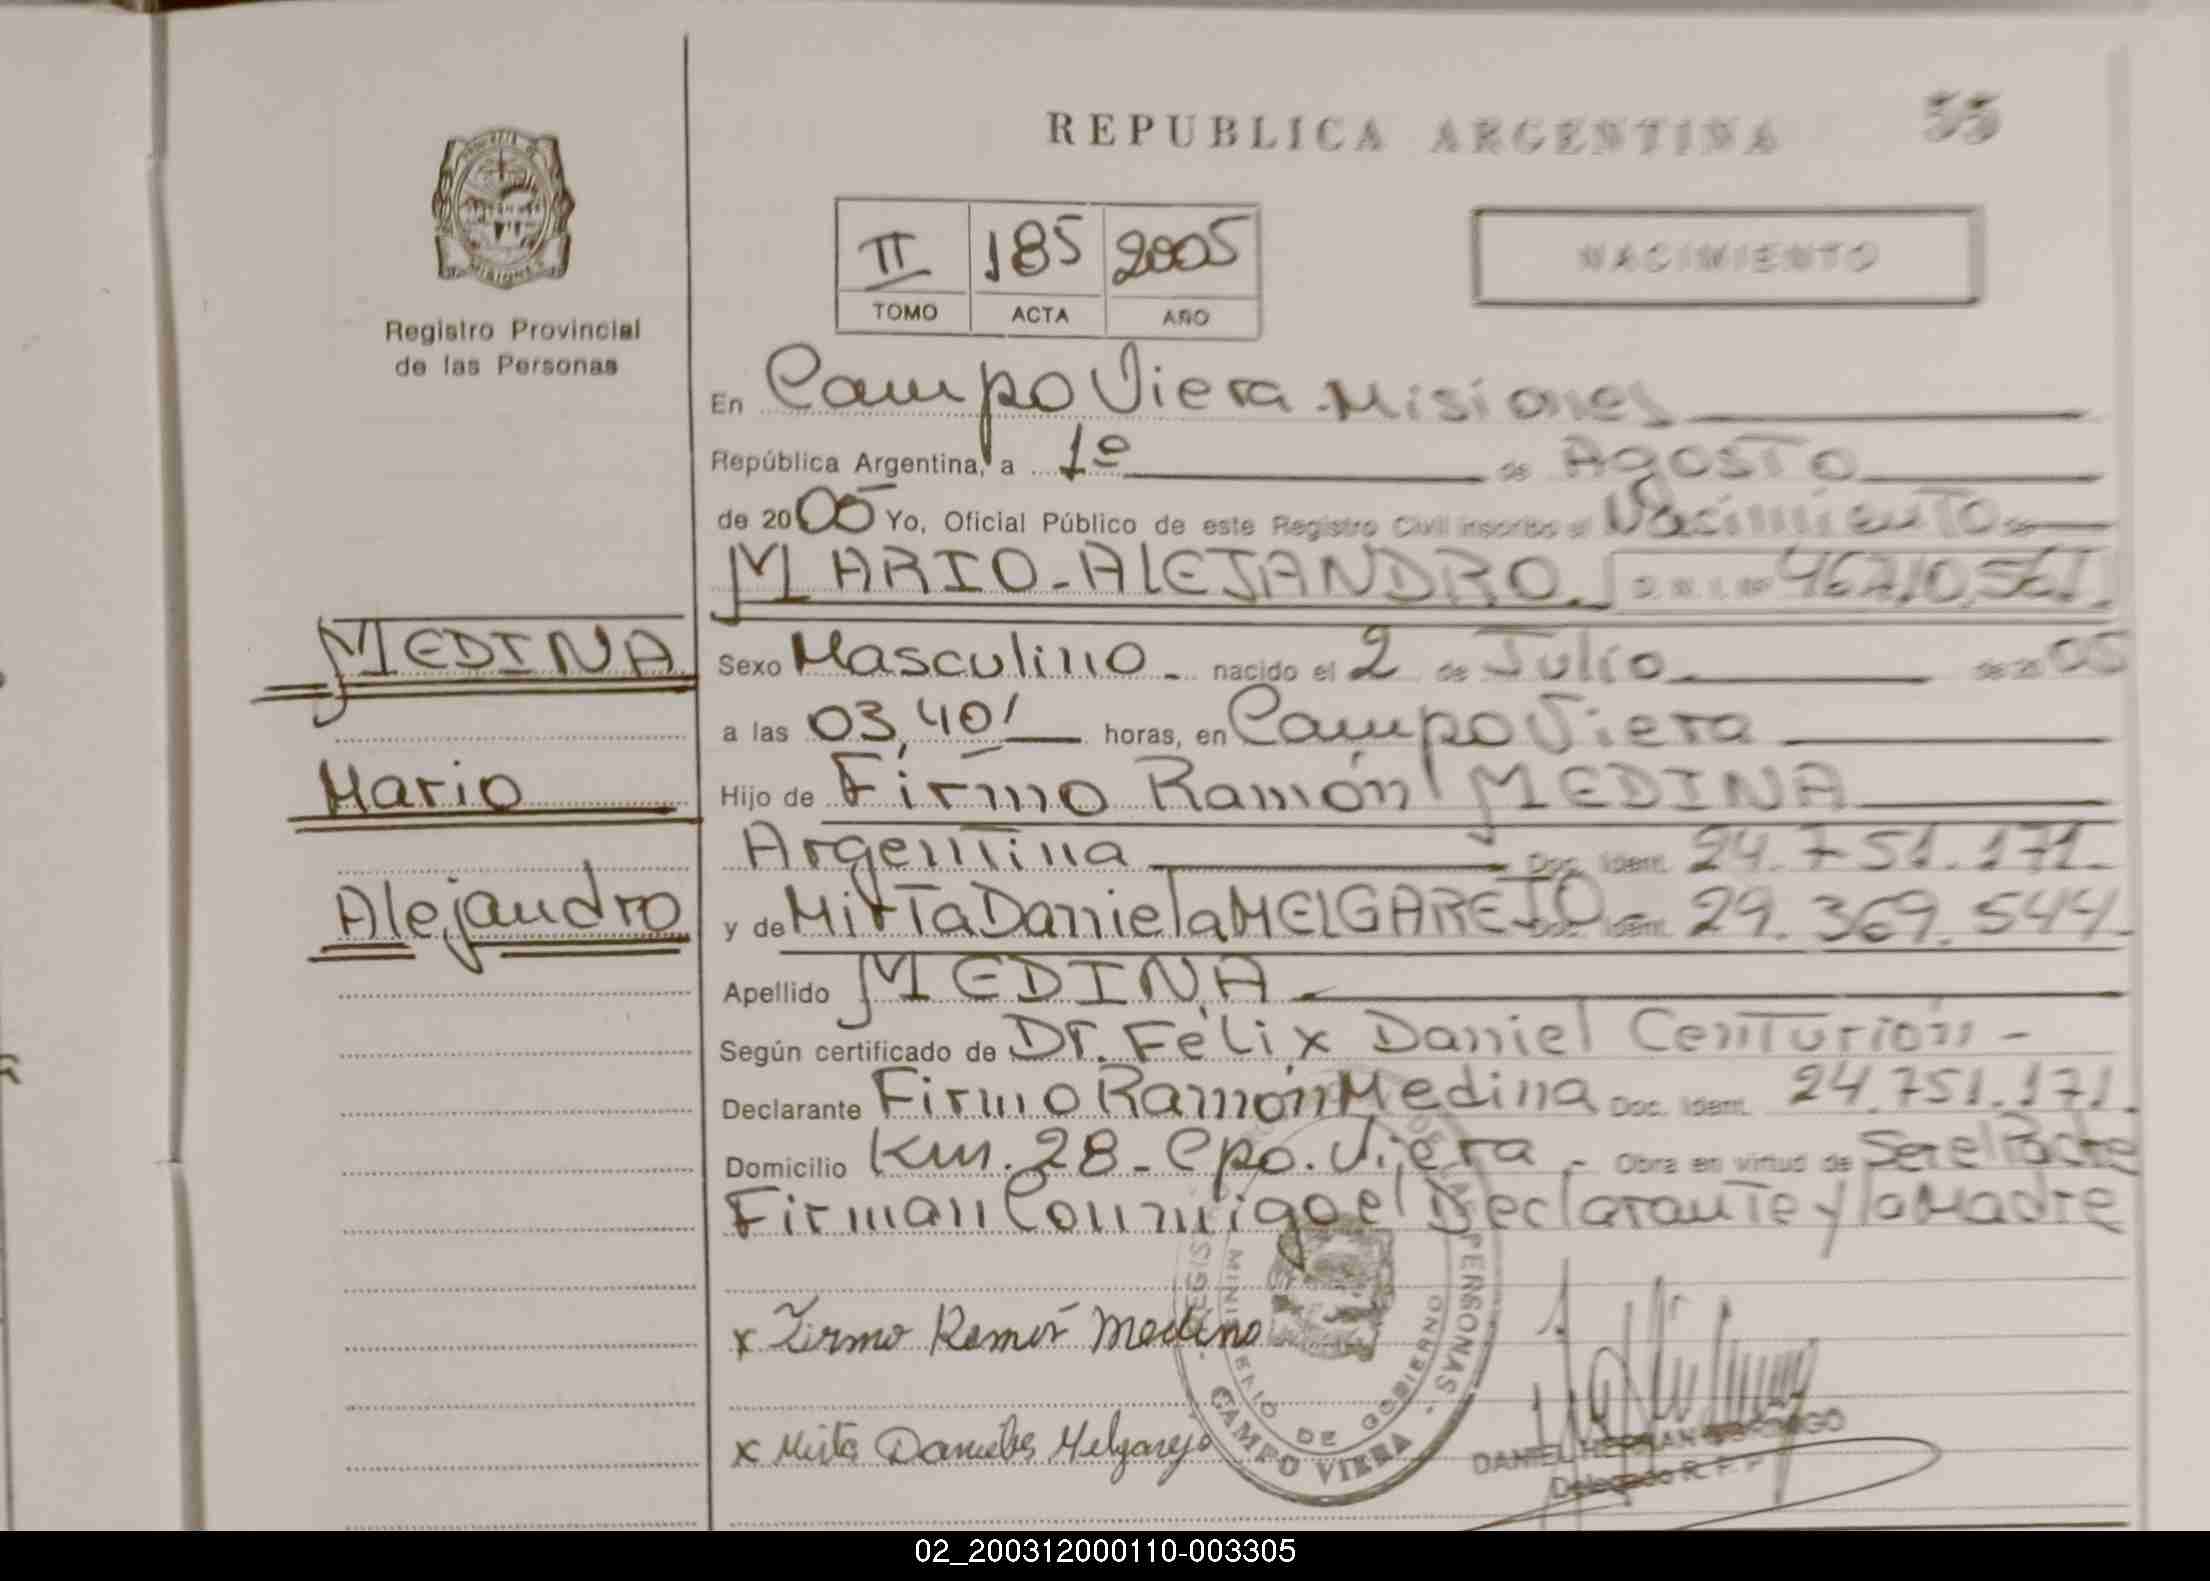 REPUBLICA ARGENTINA
55
PROVINCIA DE
MISIONES
Registro Provincial
de las Personas
II 185 2005
TOMO ACTA AÑO
NACIMIENTO
En Campo Viera - Misiones
República Argentina, a 1º de Agosto
de 2005 Yo, Oficial Público de este Registro Civil inscribo el Nacimiento de
MARIO-ALEJANDRO. D.N.I. Nº 46.210.561.
MEDINA
Sexo Masculino - nacido el 2 de Julio de 2005
a las 03,40' horas, en Campo Viera
Mario
Hijo de Firmo Ramón MEDINA
Argentina Doc. Ident. 24.751.171.
Alejandro
y de Mirta Daniela MELGAREJO Doc. Ident. 29.369.544.
Apellido MEDINA
Según certificado de Dr. Félix Daniel Centurión -
Declarante Firmo Ramón Medina Doc. Ident. 24.751.171.
Domicilio Km. 28 - Cpo. Viera - Obra en virtud de Ser el Padre
Firman Conmigo el Declarante y la Madre
x Firmo Ramón Medina
x Mirta Daniela Melgarejo
PERSONAS
MINISTERIO DE GOBIERNO
CAMPO VIERA
DANIEL HERNAN
Delegado R. P. P.
02_200312000110-003305